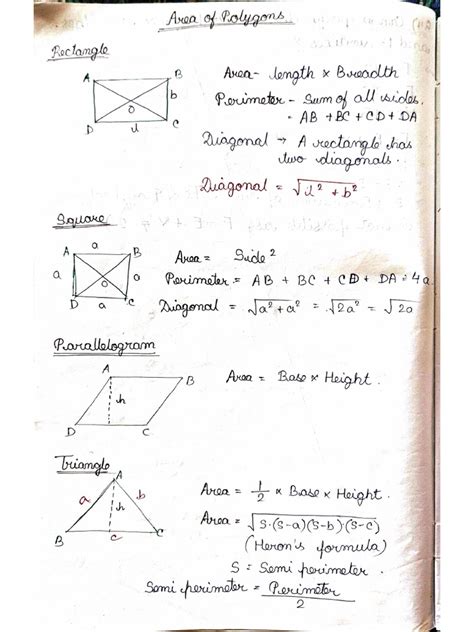 Area of Polygons
Rectangle
A B
b
O
D l C
Area - length × Breadth
Perimeter - Sum of all sides.
= AB + BC + CD + DA
Diagonal → A rectangle has
two diagonals.
Diagonal = √l² + b²
Square
a
A B
a a
O
D a C
Area = Side²
Perimeter = AB + BC + CD + DA = 4a
Diagonal = √a² + a² = √2a² = √2a
Parallelogram
A B
h
D C
Area = Base × Height.
Triangle
A
a b
h
B c C
Area = 1/2 × Base × Height.
Area = √S·(S-a)(S-b)·(S-c)
(Heron's formula)
S = Semi perimeter.
Semi perimeter = Perimeter/2